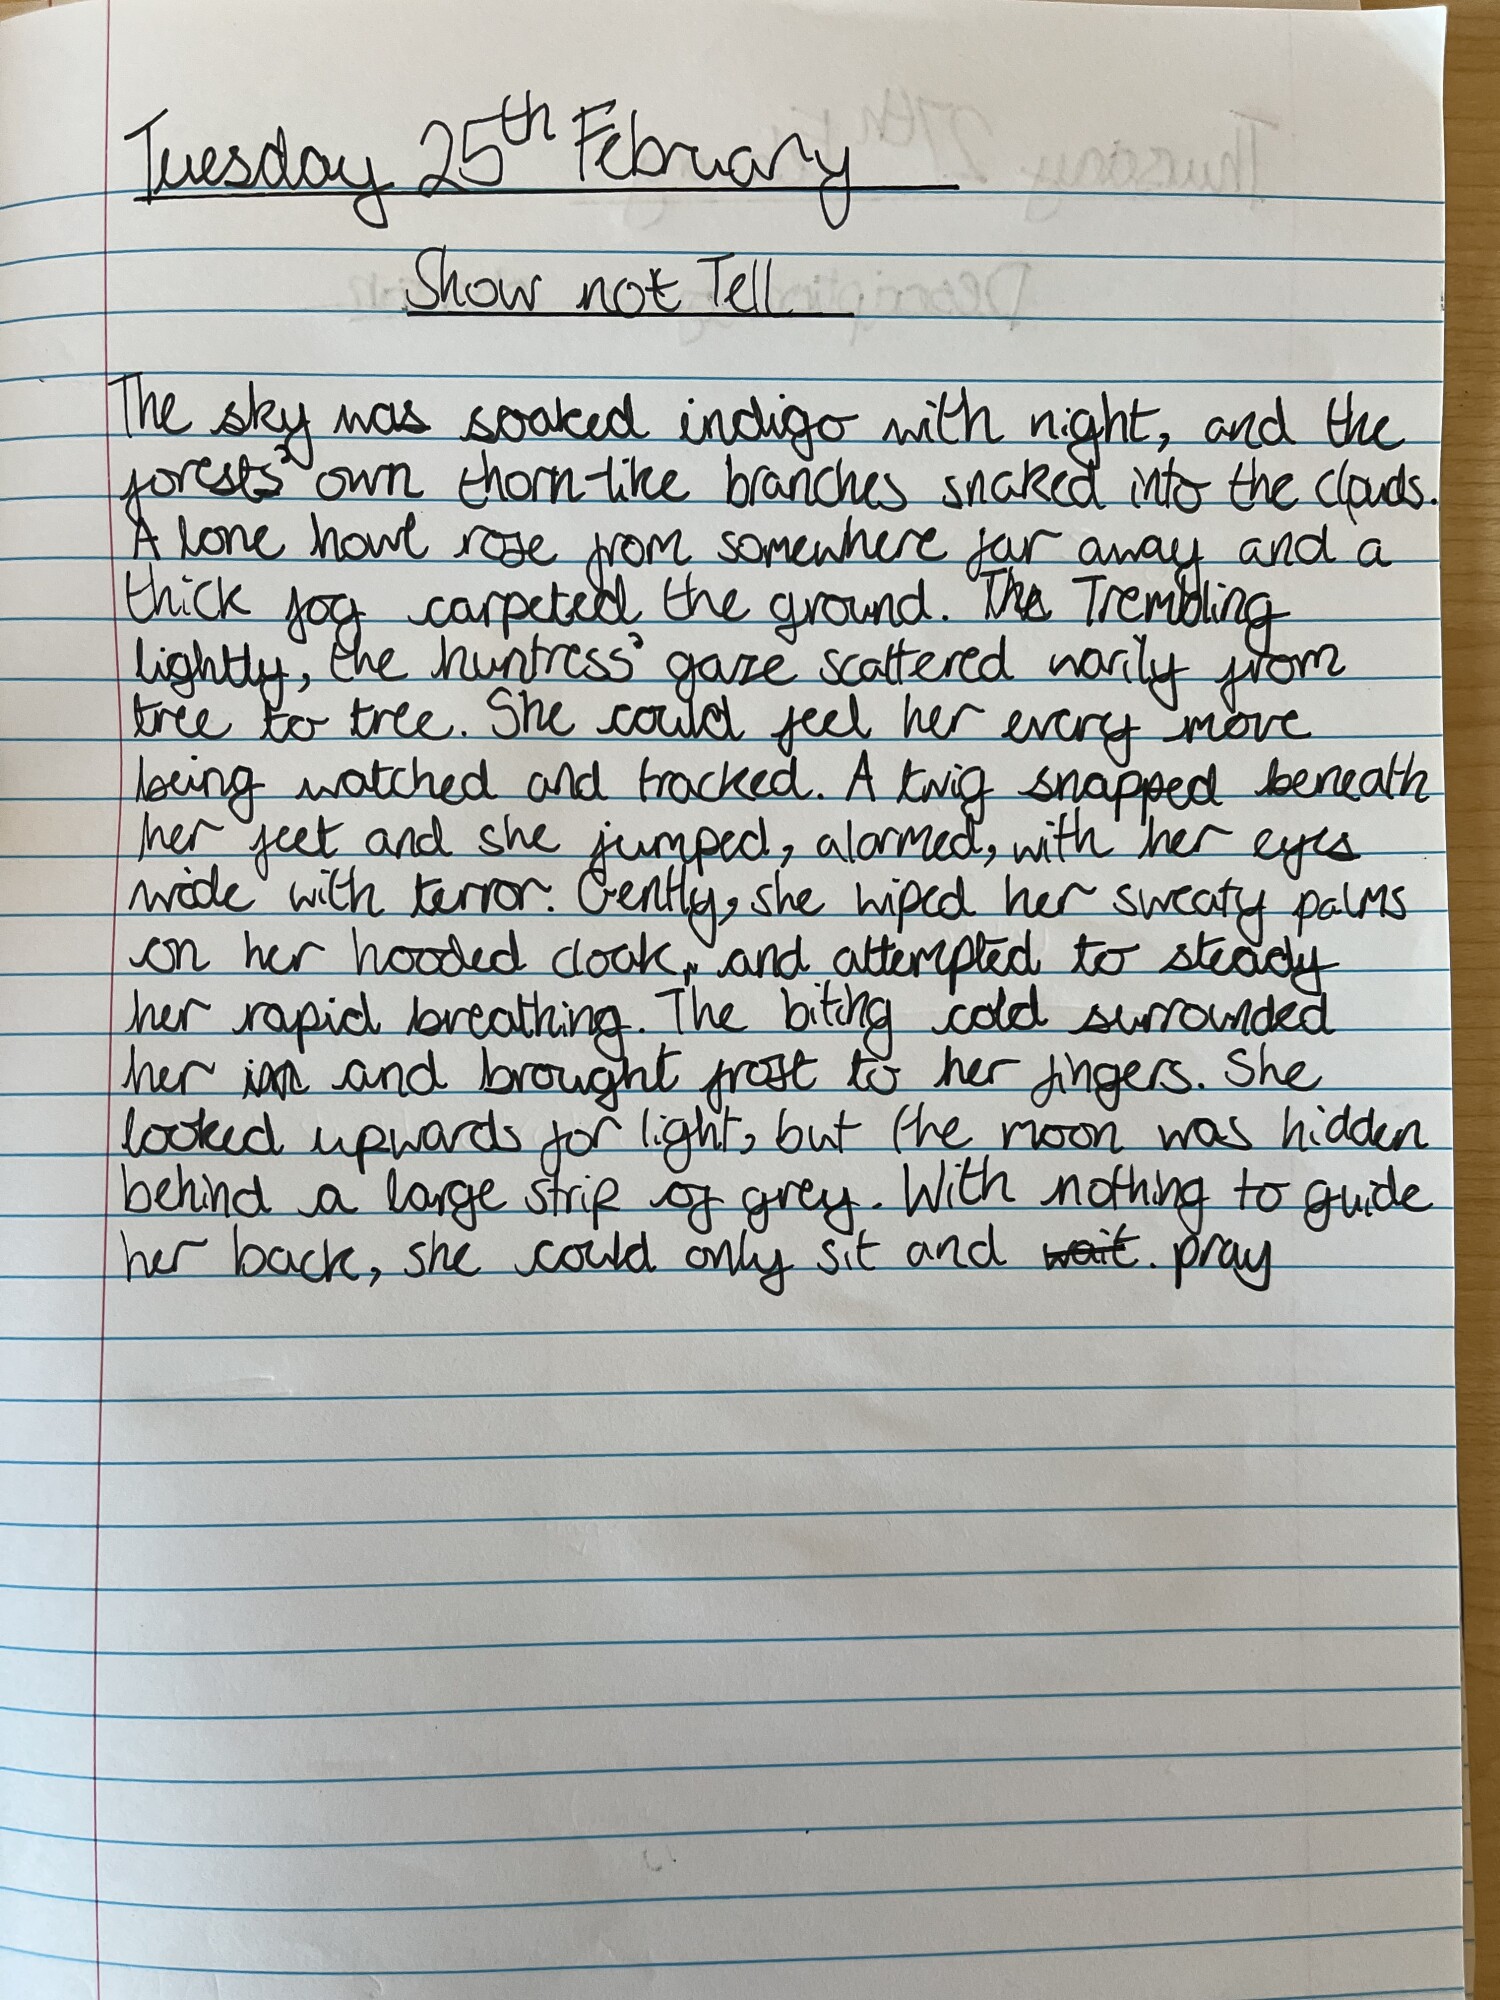 Tuesday 25th February
Show not Tell
The sky was soaked indigo with night, and the
forests' own thorn-like branches snaked into the clouds.
A lone howl rose from somewhere far away and a
thick fog carpeted the ground. The Trembling
lightly, the huntress' gaze scattered warily from
tree to tree. She could feel her every move
being watched and tracked. A twig snapped beneath
her feet and she jumped, alarmed, with her eyes
wide with terror. Gently, she wiped her sweaty palms
on her hooded cloak, and attempted to steady
her rapid breathing. The biting cold surrounded
her and brought frost to her fingers. She
looked upwards for light, but the moon was hidden
behind a large strip of grey. With nothing to guide
her back, she could only sit and wait. pray